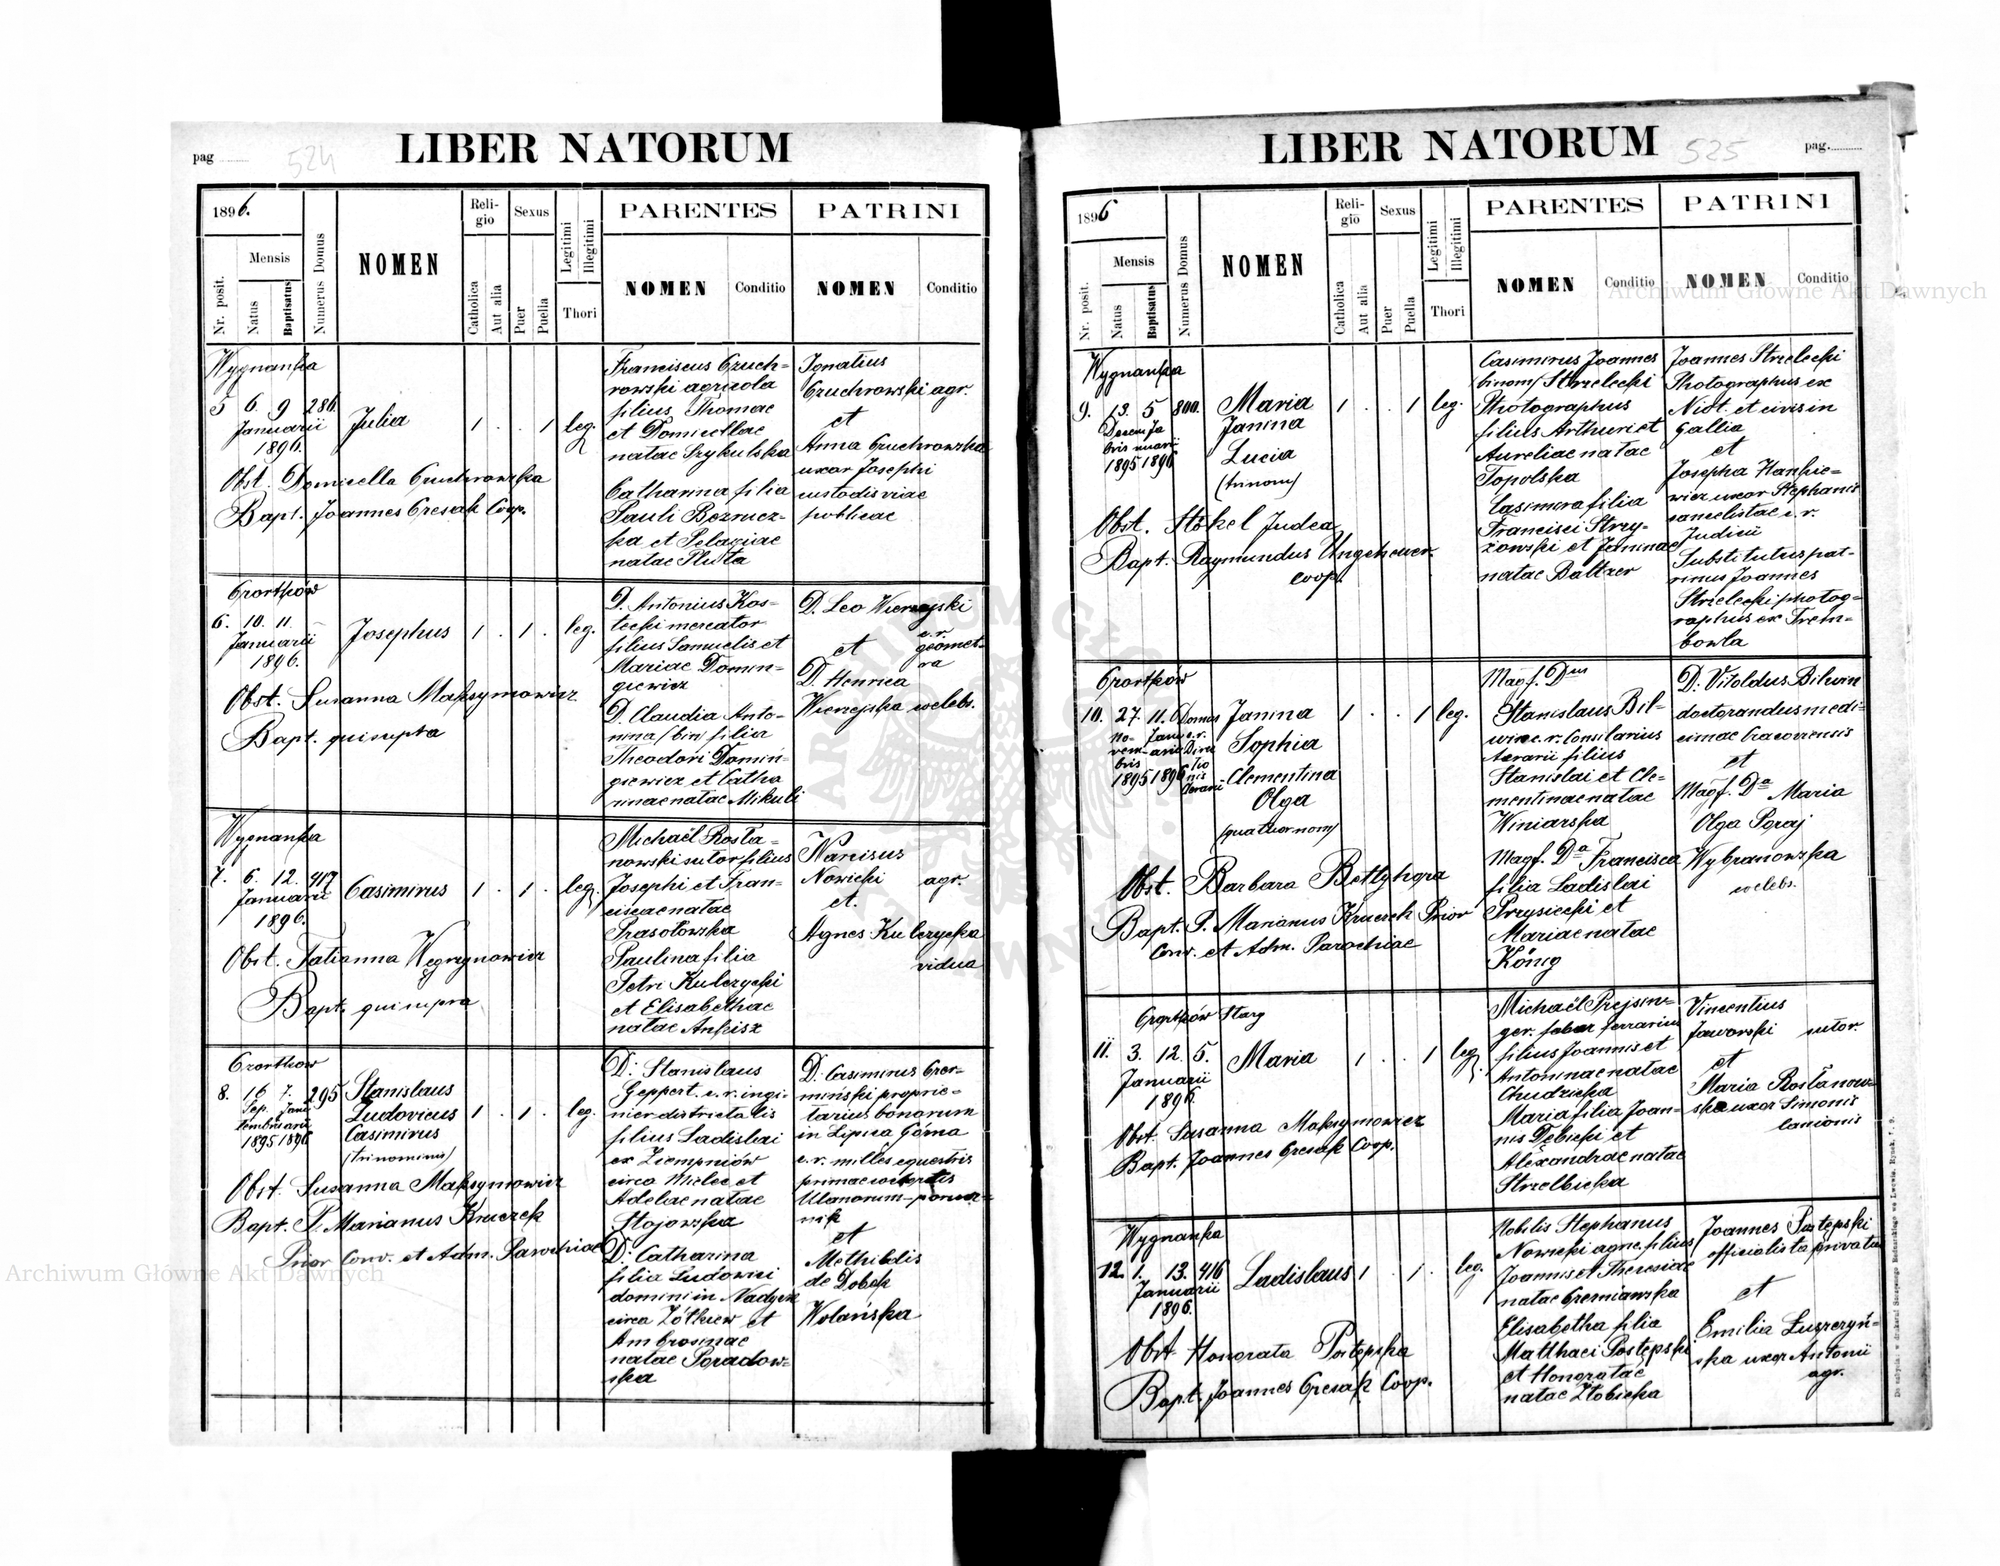 LIBER NATORUM
pag
524
1896.
Nr. posit.
Mensis
Natus
Baptisatus
Numerus Domus
NOMEN
Religio
Catholica
Aut alia
Sexus
Puer
Puella
Legitimi
Illegitimi
Thori
PARENTES
NOMEN
Conditio
PATRINI
NOMEN
Conditio
Wygnanka
5 6. 9 286.
Januarii
1896.
Julia
1 . . 1 leg.
Obst. Domicella Czuchrowska
Bapt. Joannes Gresak Coop.
Franciscus Czuch-
rowski agricola
filius Thomae
et Domicellae
natae Szykulska
Catharina filia
Pauli Bezrucz-
ka et Pelagiae
natae Pluta
Ignatius
Czuchrowski agr.
et
Anna Czuchrowska
uxor Josephi
custodis viae
publicae
Czortków
6. 10. 11.
Januarii
1896.
Josephus
1 . 1 . leg.
Obst. Susanna Maksymowicz
Bapt. qui supra
D. Antonius Kos-
tecki mercator
filius Samuelis et
Mariae Domin-
giewicz
D. Claudia Anto-
nina /bin/ filia
Theodori Domin-
giewicz et Catha
rinae natae Mikuli
D. Leo Wierzejski
c.r.
geomet-
ra
et
D. Henrica
Wierzejska coelebs.
Wygnanka
7. 6. 12. 417
Januarii
1896.
Casimirus
1 . 1 . leg.
Obst. Tatianna Węgrzynowicz
Bapt. qui supra
Michaël Rosta-
nowski sutor filius
Josephi et Fran-
ciscae natae
Prasołowska
Paulina filia
Petri Kulczycki
et Elisabethae
natae
Narcisus
Nowicki agr.
et.
Agnes Kulczycka
vidua
Czortkow
8. 16 7. 295
Sep- Janu
tembris arii
1895 1896
Stanislaus
Ludovicus
Casimirus
(trinominis)
1 . 1 . leg.
Obst. Susanna Maksymowicz
Bapt. P. Marianus Kruczek
Prior Conv. et Adm. Parochiae
D: Stanislaus
Geppert. c. r. ingi-
nier districtalis
filius Ladislai
ex Ziempniów
circa Mielec et
Adelae natae
Stojowska
D: Catharina
filia Ludovici
domini in Nadycze
circa Żółkiew et
Ambrosinae
natae Poradow-
ska
D. Casimirus Czer-
miński proprie-
tarius bonorum
in Lipica Górna
c. r. milles equestris
primae
Ulanorum-porucz-
nik
et
Methildis
de Dobek
Wolańska
LIBER NATORUM
525
pag.
1896
Nr. posit.
Mensis
Natus
Baptisatus
Numerus Domus
NOMEN
Religio
Catholica
Aut alia
Sexus
Puer
Puella
Legitimi
Illegitimi
Thori
PARENTES
NOMEN
Conditio
PATRINI
NOMEN
Conditio
Wygnanka
9. 13. 5 800.
Decem Ja
bris nuarii
1895 1896
Maria
Janina
Lucia
(trinom)
1 . . 1 leg.
Obst. Stökel Judea
Bapt. Raymundus Ungeheuer
coop.
Casimirus Joannes
/binom/ Strzelecki
Photographus
filius Arthuri et
Aureliae natae
Topolska
Casimera filia
Francisci Strzy-
żowski et Janinae
natae Baltzer
Joannes Strzelecki
Photographus ex
Niot. et civis in
Gallia
et
Josepha Hankie-
wicz uxor Stephanis
cancelistae c. r.
Judicii
Substitutus pat-
rinus Joannes
Strzelecki photog-
raphus ex Trem-
bowla
Czortków
10. 27. 11. 6 Domus
No- Janu c. r.
vem- arii Dire
bris ctio
1895 1896 nis
Janina
Sophia
Clementina
Olga
/quatuor nom/
1 . . 1 leg.
Obst. Barbara Betlyhora
Bapt. P. Marianus Kruczek Prior
Conv. et Adm. Parochiae
Magf. Dnus
Stanislaus Bil-
win c. r. Consilarius
Aerarii filius
Stanislai et Cle-
mentinae natae
Winiarska
Magf. Da Francisca
filia Ladislai
Przysiecki et
Mariae natae
König
D. Vitoldus Bilwin
doctorandus medi-
cinae Cracoviensis
et
Magf. Da Maria
Olga Pgraj
Wybranowska
coelebs.
Czortków Stary
11. 3. 12. 5.
Januarii
1896.
Maria
1 . . 1 leg.
Obst. Susanna Maksymowicz
Bapt. Joannes Gresak Coop.
Michaël Prejzin-
ger. faber ferrarius
filius Joannis et
Antoninae natae
Chudzicka
Maria filia Joan-
nis Dębicki et
Alexandrae natae
Strzelbicka
Vincentius
Jaworski sutor
et
Maria Rostanow-
ska uxor Simonis
lanionis
Wygnanka
12. 1. 13. 416
Januarii
1896.
Ladislaus
1 . 1 . leg.
Obst Honorata Postępska
Bapt. Joannes Gresak Coop.
Nobilis Stephanus
Nowicki agric. filius
Joannis et Theresiae
natae Czerniawska
Elisabetha filia
Matthaei Postępski
et Honoratae
natae Złobicka
Joannes Postępski
officialista privatus
et
Emilia Łuszczyń-
ska uxor Antonii
agr.
Archiwum Główne Akt Dawnych
Archiwum Główne Akt Dawnych